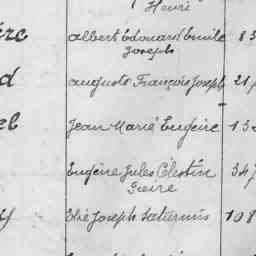 Henri
erc albert Edouard Emile 83
Joseph
d auguste François Joseph 21
el Jean Marié Eugène 132
Eugène Jules Célestin 34
Pierre
y Elie Joseph Saturnin 108